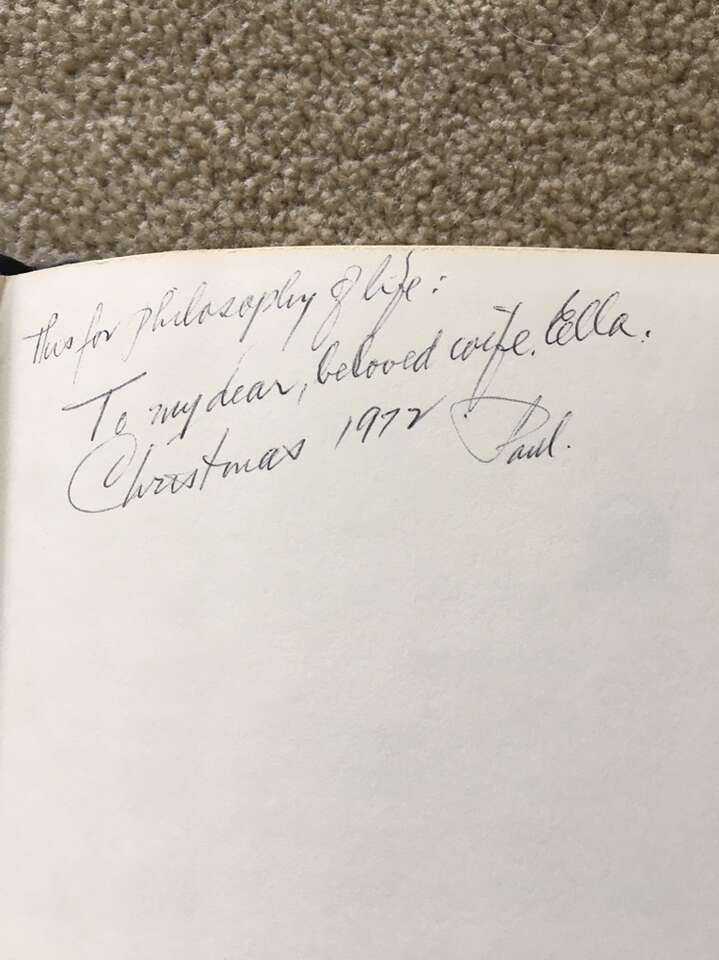 This for philosophy of life:
To my dear, beloved wife. Ella.
Christmas 1972 Paul.